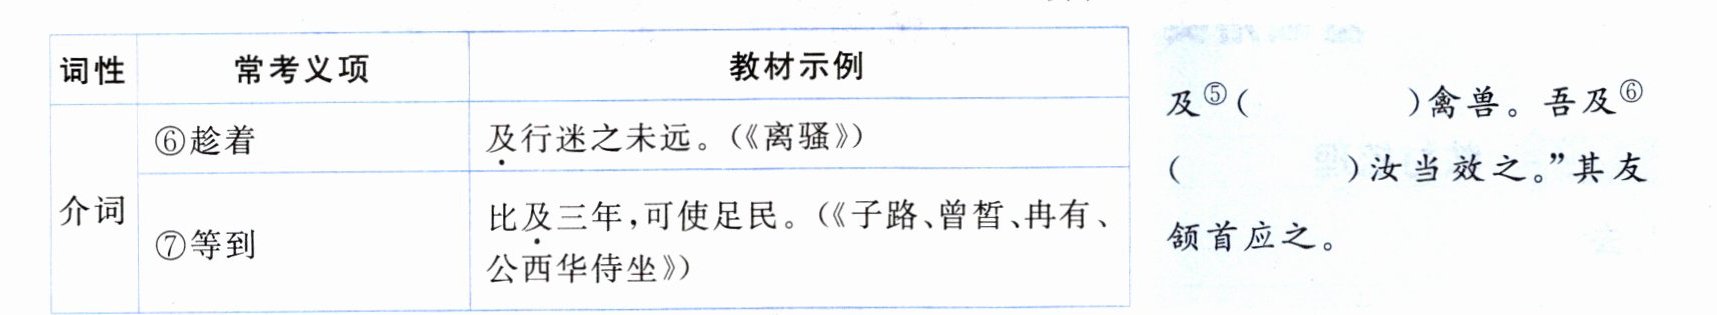 词性 常考义项 教材示例
介词
⑥趁着 及行迷之未远。(《离骚》)
⑦等到 比及三年,可使足民。(《子路、曾皙、冉有、
公西华侍坐》)
及⑤( )禽兽。吾及⑥
( )汝当效之。”其友
颔首应之。